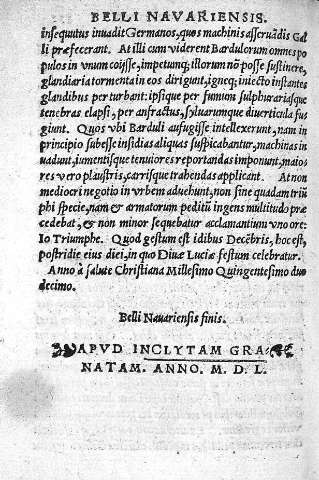 BELLI NAVARIENSIS.
insequutus inuadit Germanos, quos machinis asseruādis Gal
li præfecerant. At illi cum viderent Bardulorum omnes po
pulos in vnum coijsse, impetumq; illorum nō posse sustinere,
glandiaria tormenta in eos dirigunt, igneq; iniecto instantes
glandibus perturbant: ipsique per fumum sulphurariasque
tenebras elapsi, per anfractus, syluarumque diuerticula fu
giunt. Quos vbi Barduli aufugisse intellexerunt, nam in
principio subesse insidias aliquas suspicabantur, machinas in
uadunt, iumentisque tenuiores reportandas imponunt, maio
res vero plaustris, carrisque trahendas applicant. At non
mediocri negotio in vrbem aduehunt, non sine quadam triū
phi specie, nam & armatorum peditū ingens multitudo præ
cedebat, & non minor sequebatur acclamantium vno ore:
Io Triumphe. Quod gestum est idibus Decēbris, hoc est,
postridie eius diei, in quo Diuæ Luciæ festum celebratur.
Anno à salute Christiana Millesimo Quingentesimo duo
decimo.
Belli Nauariensis finis.
APVD INCLYTAM GRA
NATAM. ANNO. M. D. L.